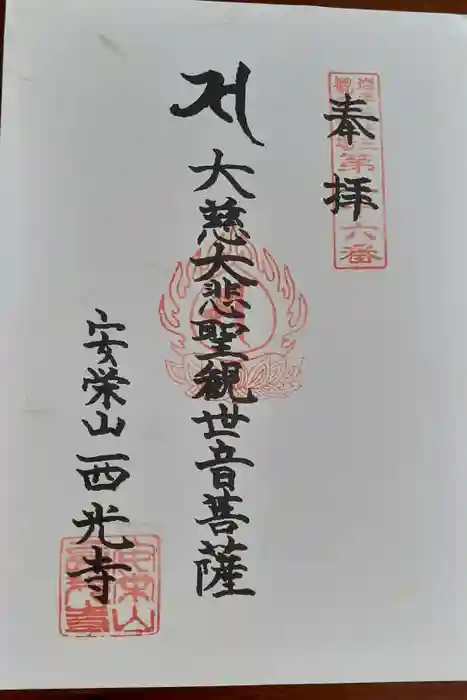 奉拝
第六番
大慈大悲聖観世音菩薩
安栄山西光寺